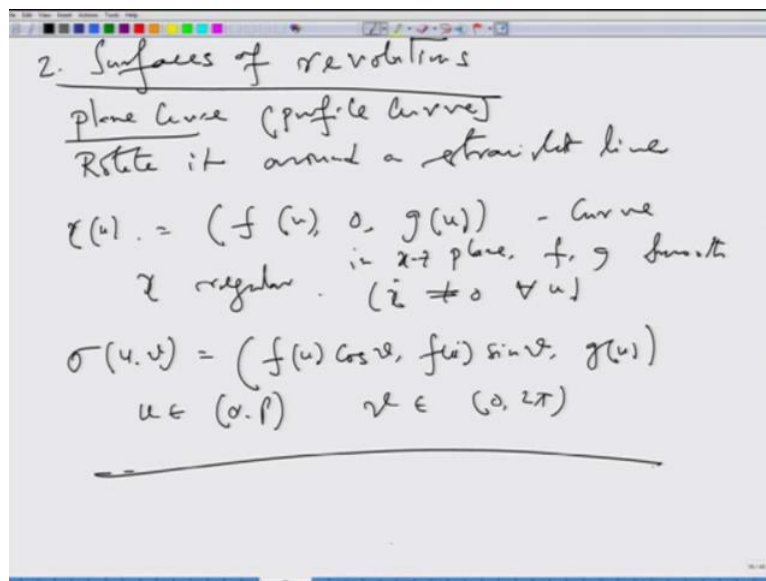 2. Surfaces of revolutions
plane curve (profile curve)
Rotate it around a straight line
γ(u) = (f(u), 0, g(u)) - curve
in x-z plane, f, g smooth
γ regular. (γ̇ ≠ 0 ∀ u)
σ(u, v) = (f(u) cos v, f(u) sin v, g(u))
u ∈ (α, β) v ∈ (0, 2π)